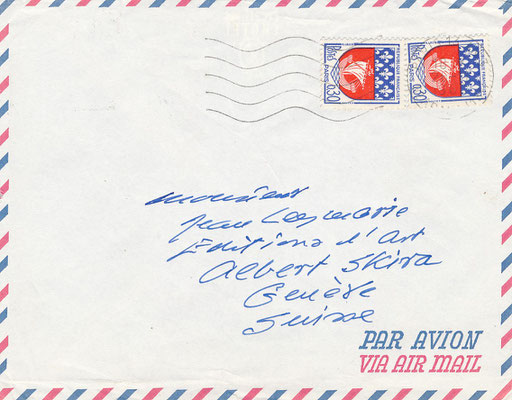 0.30
PARIS
0.30
PARIS
monsieur
Jean Leymarie
Editions d'Art
Albert Skira
Genève
Suisse
PAR AVION
VIA AIR MAIL